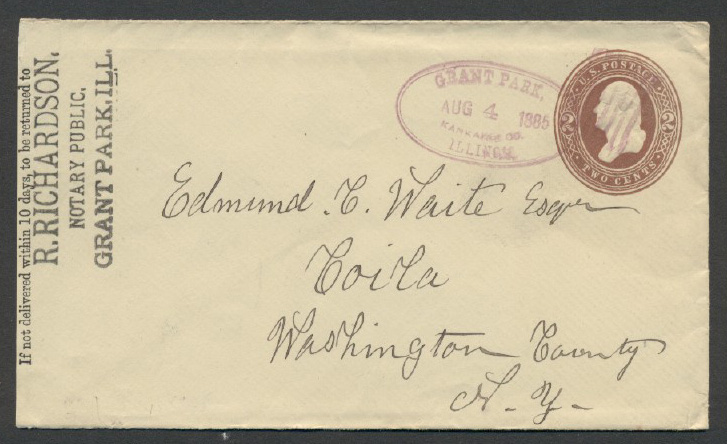 If not delivered within 10 days, to be returned to
R. RICHARDSON,
NOTARY PUBLIC,
GRANT PARK, ILL.
GRANT PARK,
AUG 4 1885
KANKAKEE CO.
ILLINOIS.
U.S. POSTAGE
2 2
TWO CENTS
Edmund. C. Waite Esqr
Coila
Washington County
N. Y.